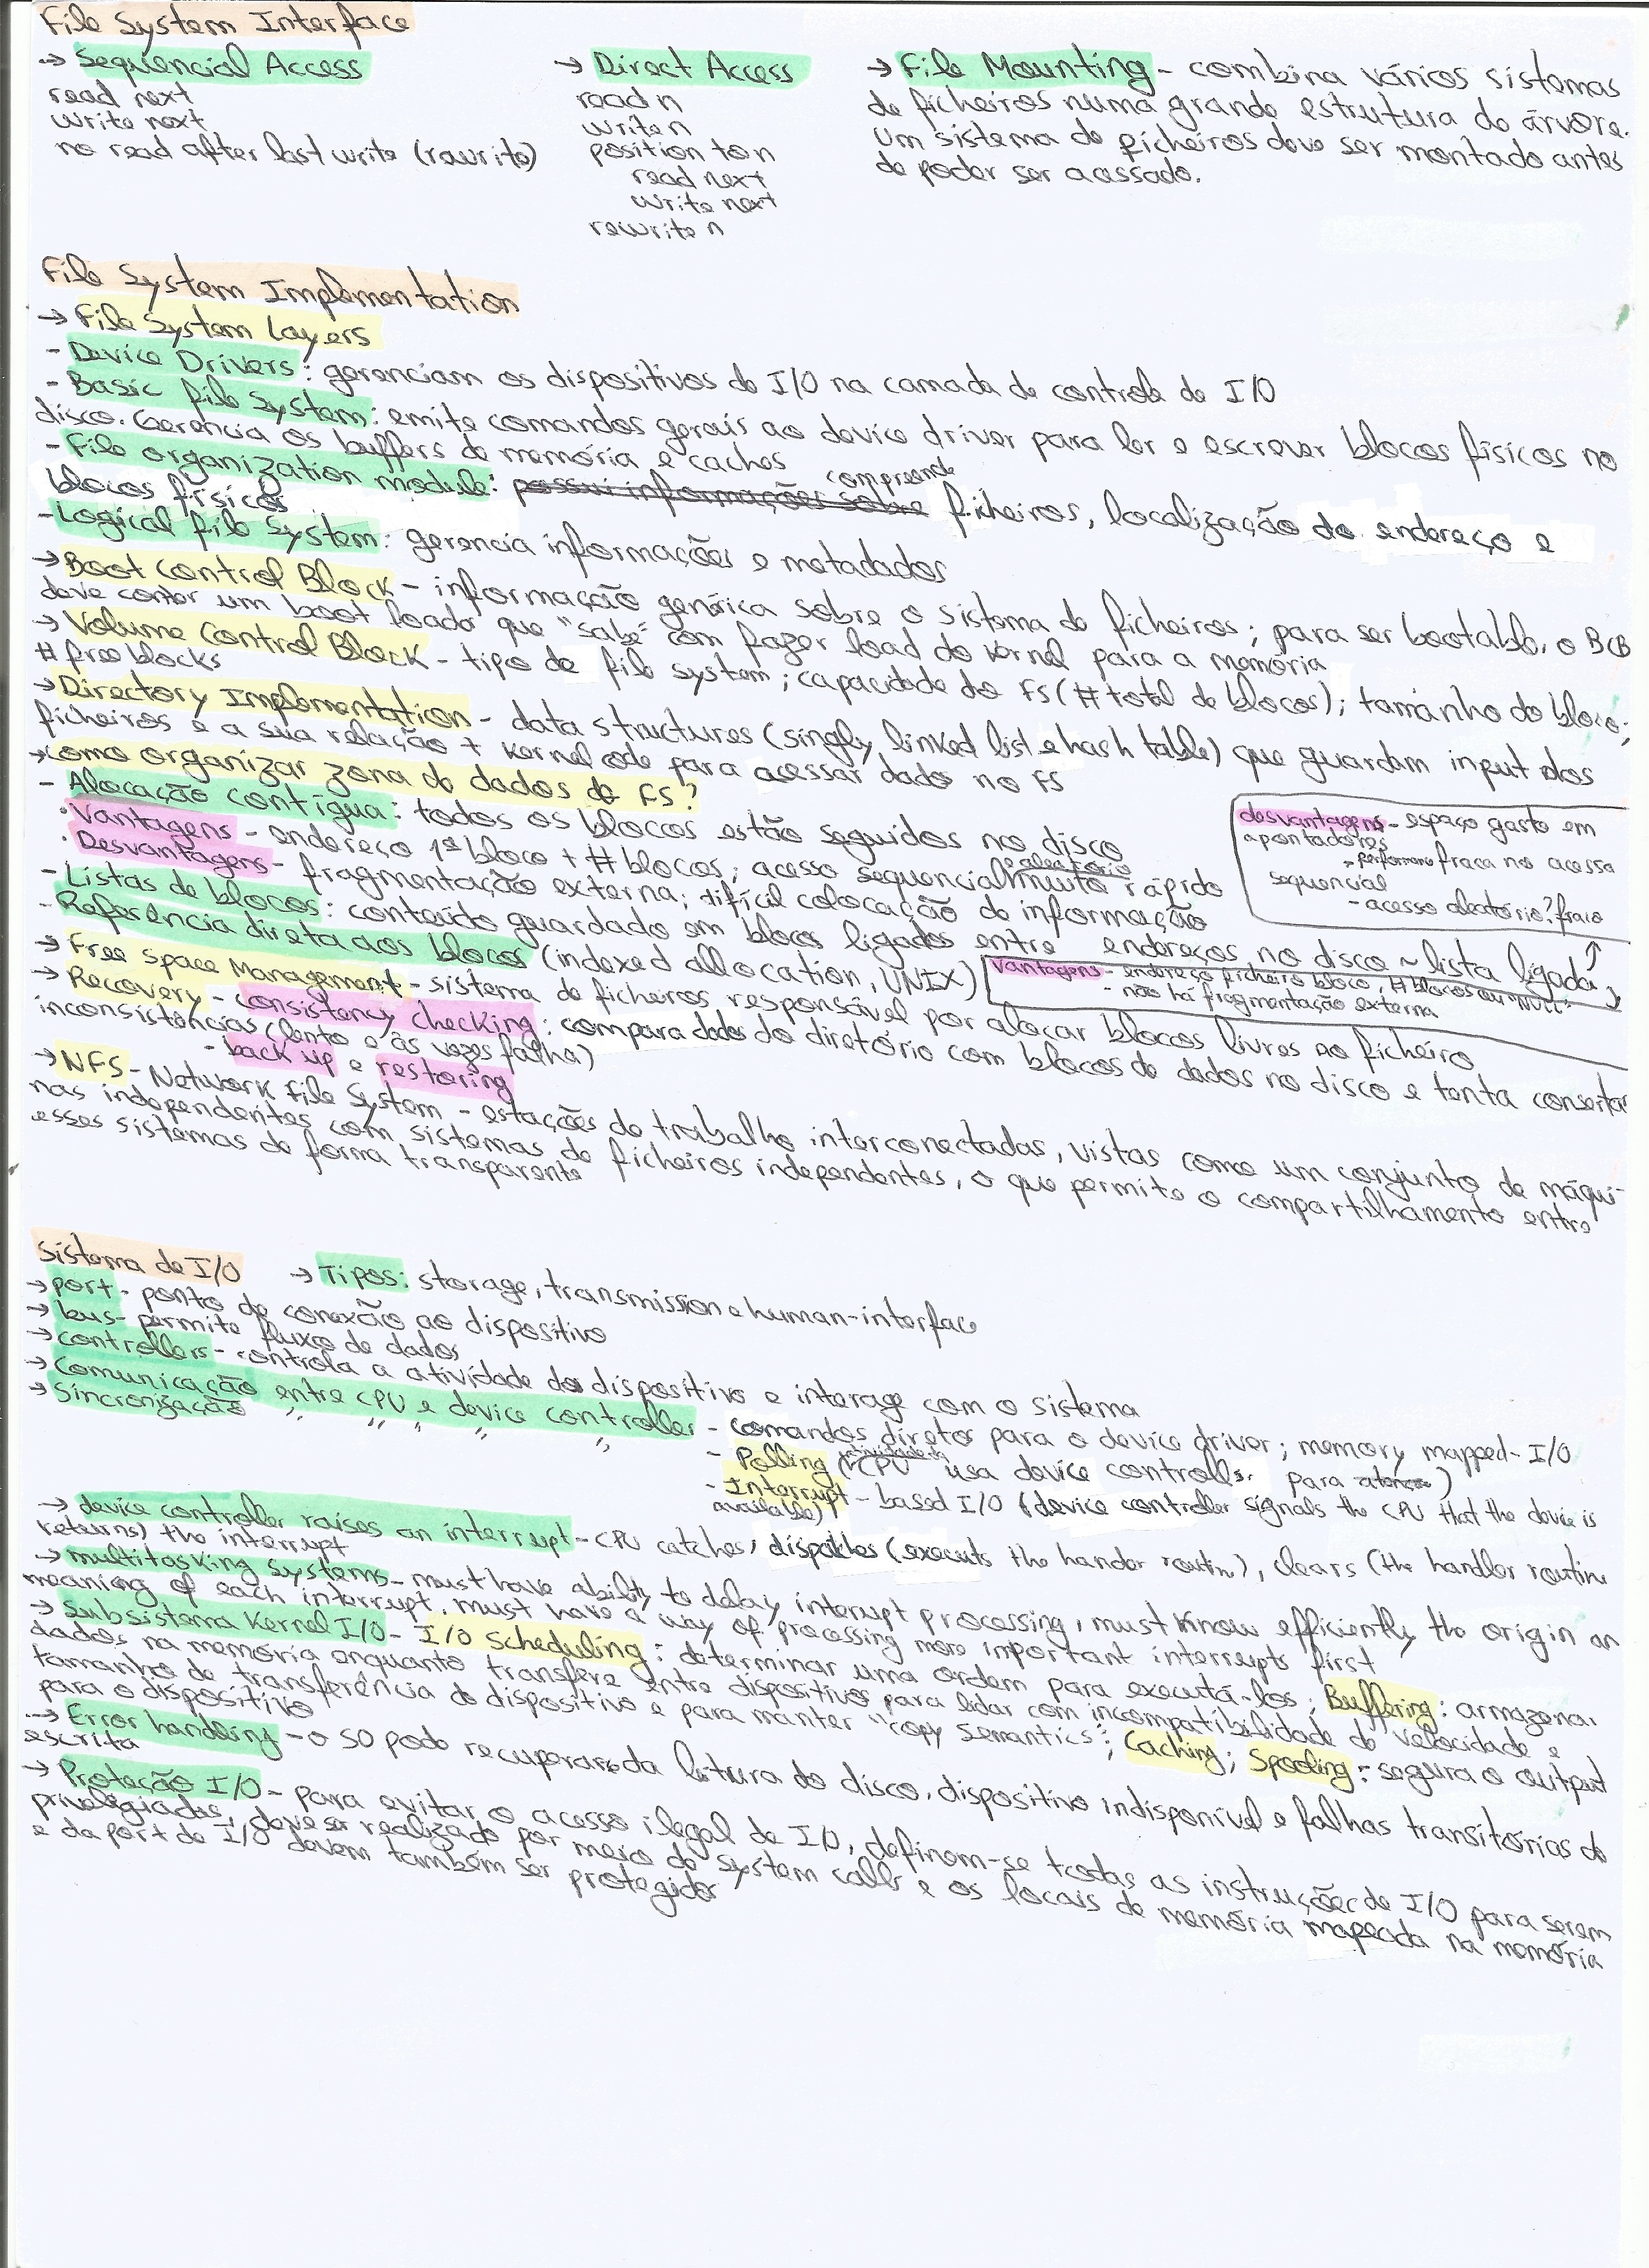 File System Interface
→ Sequencial Access
read next
write next
no read after last write (rewrite)
→ Direct Access
read n
write n
position to n
read next
write next
rewrite n
→ File Mounting - combina vários sistemas
de ficheiros numa grande estrutura de árvore.
Um sistema de ficheiros deve ser montado antes
de poder ser acessado.
File System Implementation
→ File System Layers
- Device Drivers: gerenciam os dispositivos de I/O na camada de controle de I/O
- Basic file System: emite comandos gerais ao device driver para ler e escrever blocos físicos no
disco. Gerencia os buffers de memória e caches
- File organization module: possui informações sobre compreende ficheiros, localização do endereço e
blocos físicos
- Logical file System: gerencia informações e metadados
→ Boot Control Block - informação genérica sobre o sistema de ficheiros; para ser bootable, o BCB
deve conter um boot loado que "sabe" com fazer load do kernel para a memória
→ Volume Control Block - tipo de file system; capacidade do FS (# total de blocos); tamanho do bloco;
# free blocks
→ Directory Implementation - data structures (singly linked list e hash table) que guardam input dos
ficheiros e a sua relação + kernel code para acessar dado no FS
→ como organizar zona de dados do FS?
- Alocação contígua: todos os blocos estão seguidos no disco
· Vantagens - endereço 1º bloco + # blocos; acesso sequencial/aleatório muito rápido
· Desvantagens - fragmentação externa; difícil colocação de informação
- Listas de blocos: conteúdo guardado em blocos ligados entre endereços no disco ~ lista ligada
desvantagens - espaço gasto em
apontadores
- performance fraca no acesso
sequencial
- acesso aleatório? fraco
Vantagens - endereço ficheiro bloco, # blocos ou NULL
- não há fragmentação externa
- Referência direta aos blocos (indexed allocation, UNIX)
→ Free Space Management - sistema de ficheiros responsável por alocar blocos livres ao ficheiro
→ Recovery - consistency checking: compara dados do diretório com blocos de dados no disco e tenta consertar
inconsistências (lento e às vezes falha)
- back up e restoring
→ NFS - Network File System - estações de trabalho interconectadas, vistas como um conjunto de máqui-
nas independentes com sistemas de ficheiros independentes, o que permite o compartilhamento entre
esses sistemas de forma transparente
Sistema de I/O → Tipos: storage, transmission e human-interface
→ port - ponto de conexão ao dispositivo
→ bus - permite fluxo de dados
→ controllers - controla a atividade do dispositivo e interage com o sistema
→ Comunicação entre CPU e device controller - comandos diretos para o device driver; memory mapped-I/O
→ Sincronização " " " " " - Polling (CPU usa device controller para)
- Interrupt - based I/O (device controller signals the CPU that the device is
available)
→ device controller raises an interrupt - CPU catches, dispatches (executs the hander routine), clears (the handler routine
returns) the interrupt
→ multitasking systems - must have ability to delay interupt processing, must know efficiently the origin an
meaning of each interrupt, must have a way of processing more important interrupts first
→ Subsistema Kernel I/O - I/O Scheduling: determinar uma ordem para executá-los; Buffering: armazena
dados na memória enquanto transfere entre dispositivos para lidar com incompatibilidade de velocidade e
tamanho de transferência do dispositivo e para manter "copy semantics"; Caching; Spooling: segura o output
para o dispositivo
→ Error handling - o SO pode recuperar da leitura do disco, dispositivo indisponível e falhas transitórias de
escrita
→ Proteção I/O - para evitar o acesso ilegal de I/O, definem-se todas as instruções de I/O para serem
privilegiadas, deve ser realizado por meio de system calls e os locais de memória mapeada na memória
e da port de I/O devem também ser protegidos